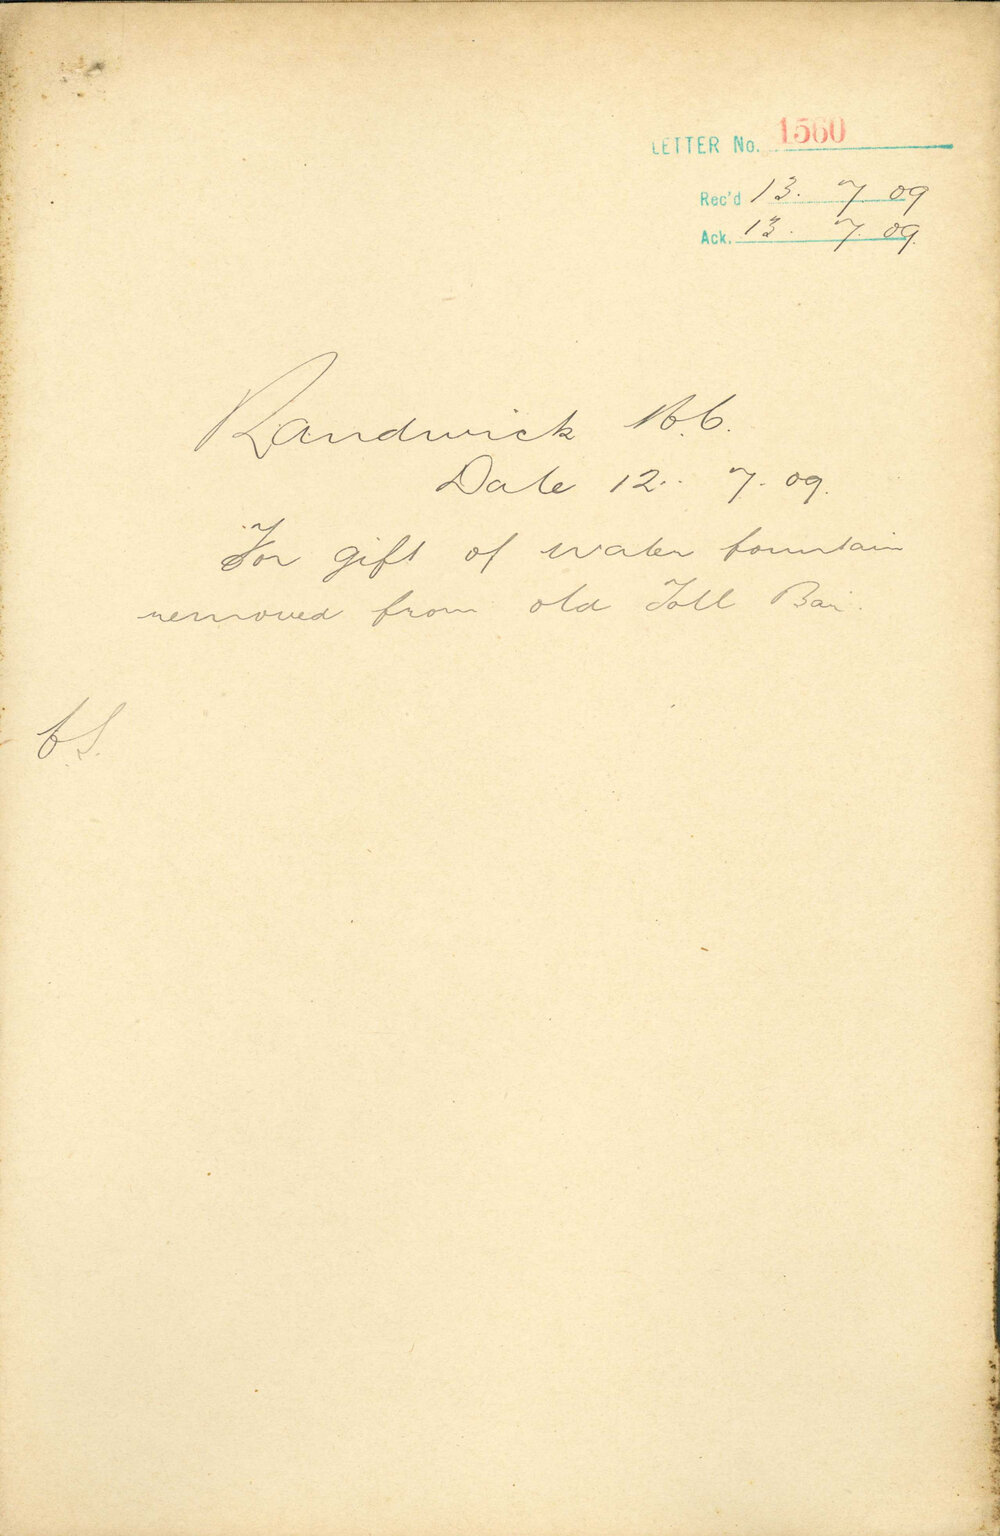 LETTER No. 1560
Rec'd 13. 7. 09
Ack. 13. 7. 09.
Randwick M.C.
Date 12. 7. 09.
For gift of water fountain
removed from old Toll Bar.
C.S.